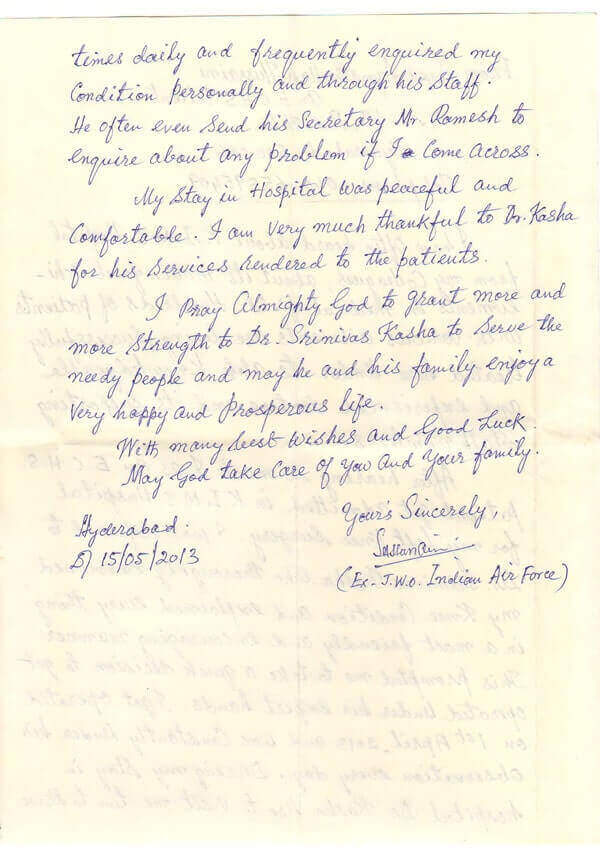 times daily and frequently enquired my
Condition personally and through his Staff.
He often even Send his Secretary Mr. Ramesh to
enquire about any problem if I Come Across.
My Stay in Hospital was peaceful and
Comfortable. I am very much thankful to Dr. Kasha
for his Services rendered to the patients.
I Pray Almighty God to grant more and
more Strength to Dr. Srinivas Kasha to Serve the
needy people and may he and his family enjoy a
very happy and Prosperous life.
With many best wishes and Good Luck.
May God take Care of You And Your family.
Hyderabad:
D) 15/05/2013
Your's Sincerely,
(Ex- J.W.O. Indian Air Force)